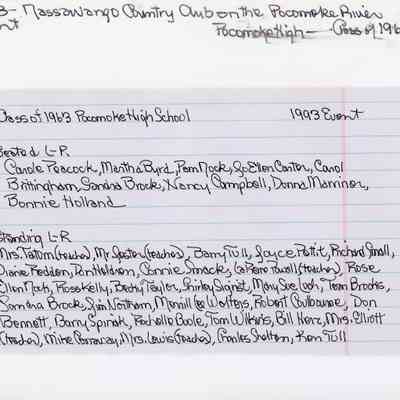 3- Nassawango Country Club on the Pocomoke River
nt Pocomoke High — Class of 196
Class of 1963 Pocomoke High School 1993 Event
Seated L-R
Carole Peacock, Martha Byrd, Pam Mock, Jo Ellen Carter, Carol
Brittingham, Sandra Brock, Nancy Campbell, Donna Marriner,
Bonnie Holland
Standing L-R
Mrs. Tatem (teacher), Mr. (teacher), Barry Tull, Joyce Pettit, Richard Small,
Diane Redden, Connie Smack, Powell (teacher), Rose
Ellen Mock, Ross Kelly, Becky Taylor, Shirley Signist, Mary Sue, Tom Brooks,
Brock, Jim Northam, Merrill Wolters, Robert Culbourne, Don
Bennett, Barry Spinak, Rochelle Poole, Tom Wilkins, Bill Henz, Mrs. Elliott
(teacher), Mike, Mrs. Lewis (teacher), Charles Shelton, Ken Tull